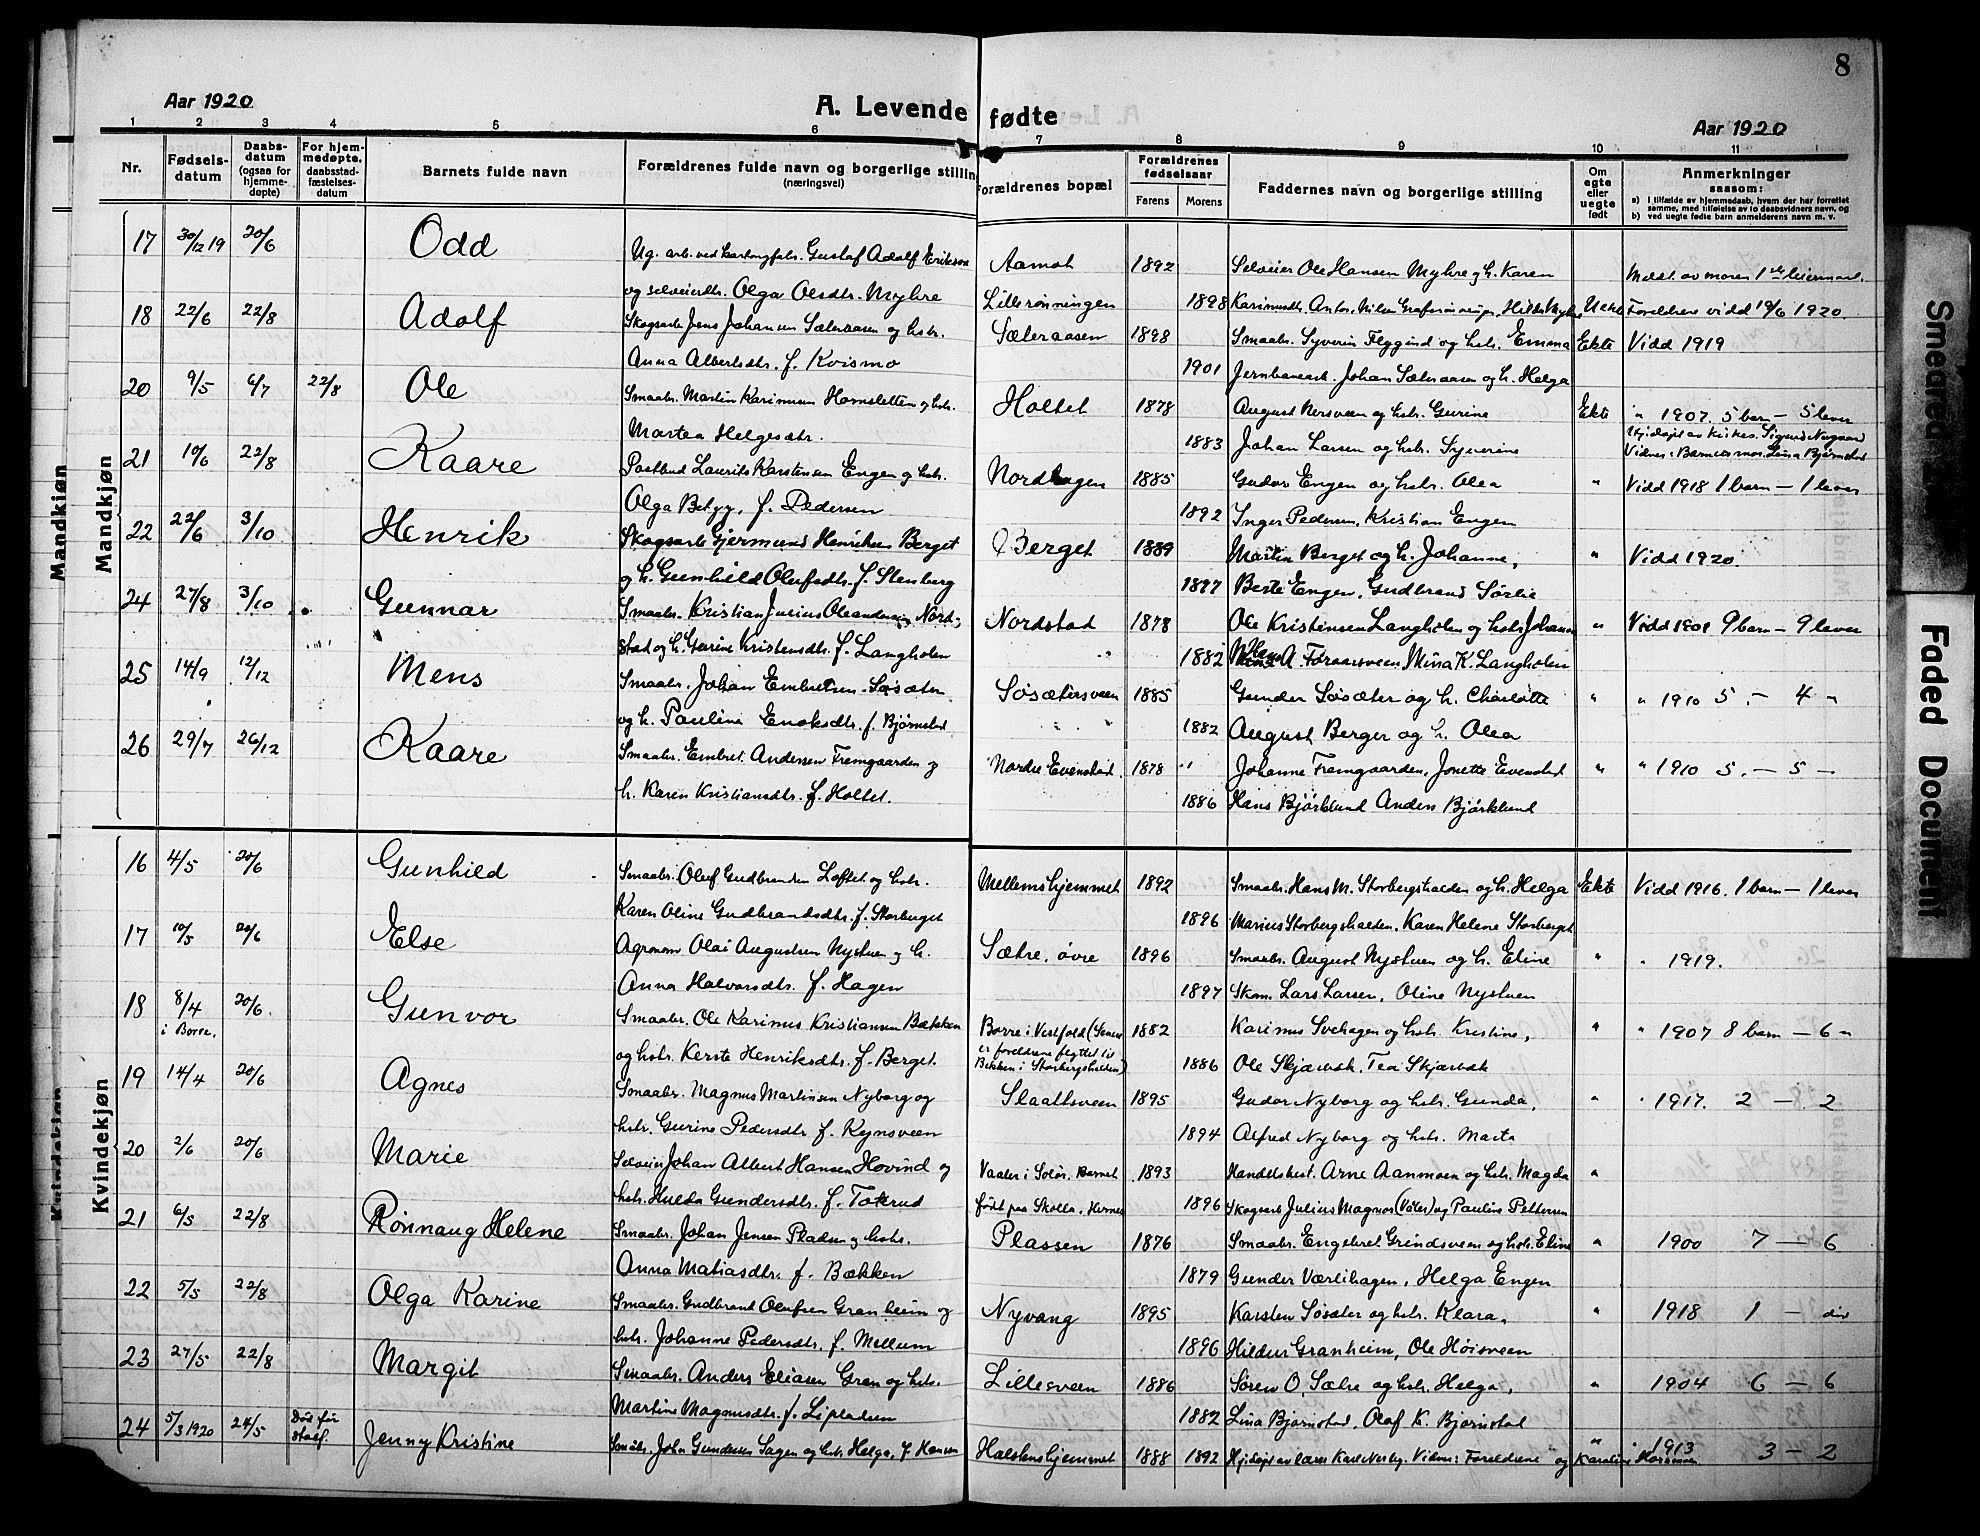 8
Aar 1920
A. Levende fødte
Aar 1920
1 2 3 4 5 6 7 8 9 10 11
Nr.
Fødselsdatum
Daabsdatum (ogsaa for hjemmedøpte)
For hjemmedøpte, daabsstadfæstelsesdatum
Barnets fulde navn
Forældrenes fulde navn og borgerlige stilling (næringsvei)
Forældrenes bopæl
Forældrenes fødselsaar
Farens Morens
Faddernes navn og borgerlige stilling
Om egte eller uegte født
Anmerkninger saasom:
a) i tilfælde av hjemmedaab, hvem der har forrettet samme, med tilføielse av to daabsvidners navn, og
b) ved uegte fødte barn anmelderens navn m. v.
Mandkjøn
Mandkjøn
17 30/12 19 20/6 Odd Ug. arb. ved kartongfabr. Gustaf Adolf Erikson Aamot 1892 Selveier Ole Hansen Myhre og h. Karen Meldt av moren 1ste leiermaal.
og selveierdtr. Olga Olsdtr. Myhre Lillerønningen 1898 Hilda Myhre Uekte Foreldrene vidd 19/6 1920.
18 22/6 22/8 Adolf Skogsarb. Jens Johansen Sæteraasen og hstr. Sæteraasen 1898 Smaabr. Syverin Flygind og hstr. Emma Ekte Vidd 1919
Anna Albertsdtr. f. Kvismo 1901 Jernbanearb. Johan Sæteraasen og h. Helga
20 9/5 6/7 22/8 Ole Smaabr. Martin Karinusen Hornsletten og hstr. Holtet 1878 August Nersveen og hstr. Gurine Ekte " 1907. 5 barn – 5 lever
Martea Helgesdtr. 1883 Johan Larsen og hstr. Syverine Hjdøpt av kirkes. Sigurd Nygaard
Vidner: Barnets mor, Lina Bjørnstad
21 10/6 22/8 Kaare Postbud Laurits Karstensen Engen og hstr. Nordhagen 1885 Gudor Engen og hstr. Olea " Vidd 1918 1 barn – 1 lever
Olga Betzy, f. Pedersen 1892 Inger Pedersen, Kristian Engen
22 22/6 3/10 Henrik Skogsarb. Gjermund Henriksen Berget Berget 1889 Martin Berget og h. Johanne, " Vidd 1920.
og h. Gunhild Olufsdtr. f. Stenberg 1897 Berte Engen, Gudbrand Sørlie
24 27/8 3/10 Gunnar Smaabr. Kristian Julius Oleandersen Nord- Nordstad 1878 Ole Kristensen Langholen og hstr. Johanne " Vidd 1901 9 barn – 9 lever
stad og h. Gurine Kristensdtr. f. Langholen " 1882 Hans A. Foraarsveen, Mina K. Langholen
25 14/9 12/12 Mens Smaabr. Johan Embretsen Søsæter Søsætersveen 1885 Gunder Søsæter og h. Charlotte " " 1910 5. – 4 "
og h. Pauline Enoksdtr. f. Bjørnstad " " 1882 August Berger og h. Olea
26 29/7 26/12 Kaare Smaabr. Embret Andersen Fremgaarden og Nordre Evenstad. 1878 " Johanne Fremgaarden, Jonette Evenstad " " 1910 5. – 5 –
h. Karen Kristiansdtr. f. Holtet. 1886 Hans Bjørklund Anders Bjørklund
Kvindekjøn
Kvindekjøn
16 4/5 20/6 Gunhild Smaabr. Oluf Gudbrandsen Loftet og hstr. Mellemshjemmet 1892 Smaabr. Hans M. Storbergshalden og h. Helga Ekte Vidd 1916. 1 barn – 1 lever
Karen Oline Gudbrandsdtr. f. Storberget 1896 Marius Storbergshalden, Karen Helene Storberget
17 10/5 20/6 Else Agronom Olai Augustsen Nystuen og h. Sætre, øvre 1896 Smaabr. August Nystuen og h. Eline " " 1919.
Anna Halvorsdtr. f. Hagen 1897 Skom. Lars Larsen, Oline Nystuen
18 8/4 i Borre. 20/6. Gunvor Smaabr. Ole Karinus Kristiansen Bækken Borre i Vestfold (Senere 1882 Karinus Svehagen og hstr. Kristine, " " 1907 8 barn – 6 "
er foreldrene flyttet til
og hstr. Kerste Henriksdtr. f. Berget. Bekken i Storbergshalden) 1886 Ole Skjærbæk, Tea Skjærbæk
19 14/4 20/6 Agnes Smaabr. Magnus Martinsen Nyborg og Slaattsveen 1895 Gudor Nyborg og hstr. Gunda, " " 1917. 2 – 2
hstr. Gurine Pedersdtr. f. Rynsveen 1894 Alfred Nyborg og hstr. Marta
20 2/6 20/6 Marie Selveier Johan Albert Hansen Hovind og Vaaler i Solør. Barnet 1893 Handelsbest. Arne Aanmoen og hstr. Magda "
hstr. Hulda Gundersdtr. f. Tokrud født paa Skolla, Hernes 1896 Skogsarb. Julius Magnor (Våler) og Pauline Pettersen
21 6/5 22/8 Rönnaug Helene Smaabr. Johan Jensen Pladsen og hstr. Plassen 1876 Smaabr. Engebret Grindsveen og hstr. Eline " 1900 7 – 6
Anna Matiasdtr. f. Bækken 1879 Gunder Værlihagen, Helga Engen
22 5/5 22/8 Olga Karine Smaabr. Gudbrand Olufsen Granheim og Nyvang 1895 Karsten Søsæter og hstr. Klara, " 1918 1 –
hstr. Johanne Pedersdtr. f. Mellum 1896 Hildur Granheim, Ole Høisveen
23 27/5 22/8 Margit Smaabr. Anders Eliasen Gran og hstr. Lillesveen 1886 Søren O. Sætre og hstr. Helga, " 1904 6 – 6
Martine Magnusdtr. f. Lipladsen 1882 Lina Bjørnstad, Olaf K. Bjørnstad
24 5/3 1920 24/5 Død før stadf. Jenny Kristine Småbr. John Gundersen Sagen og hstr. Helga, f. Hansen Halstenshjemmet 1888 1892 Hjdøpt av lærer Karl Nerby. Vidner: Foreldrene og Karoline " " 1913 3 – 2
Smeared
Faded Document